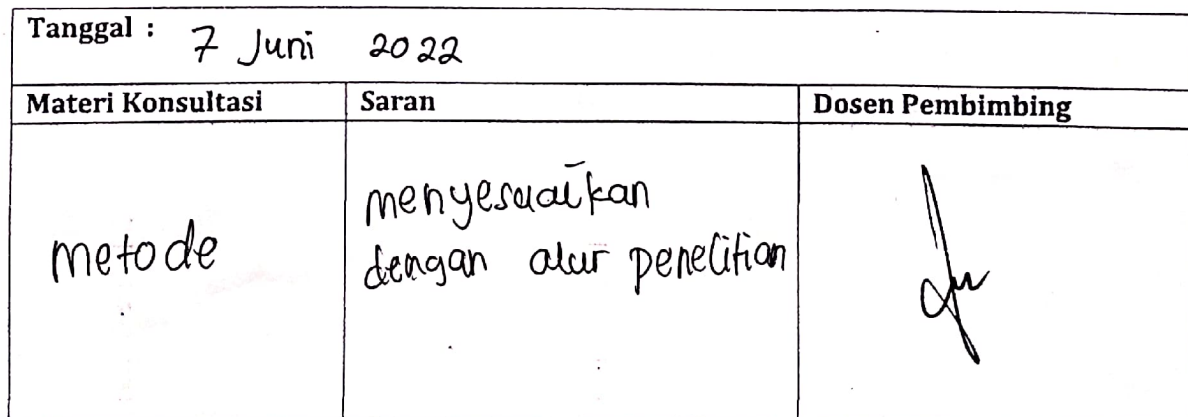 Tanggal : 7 Juni 2022
Materi Konsultasi Saran Dosen Pembimbing
metode
menyesuaikan
dengan alur penelitian